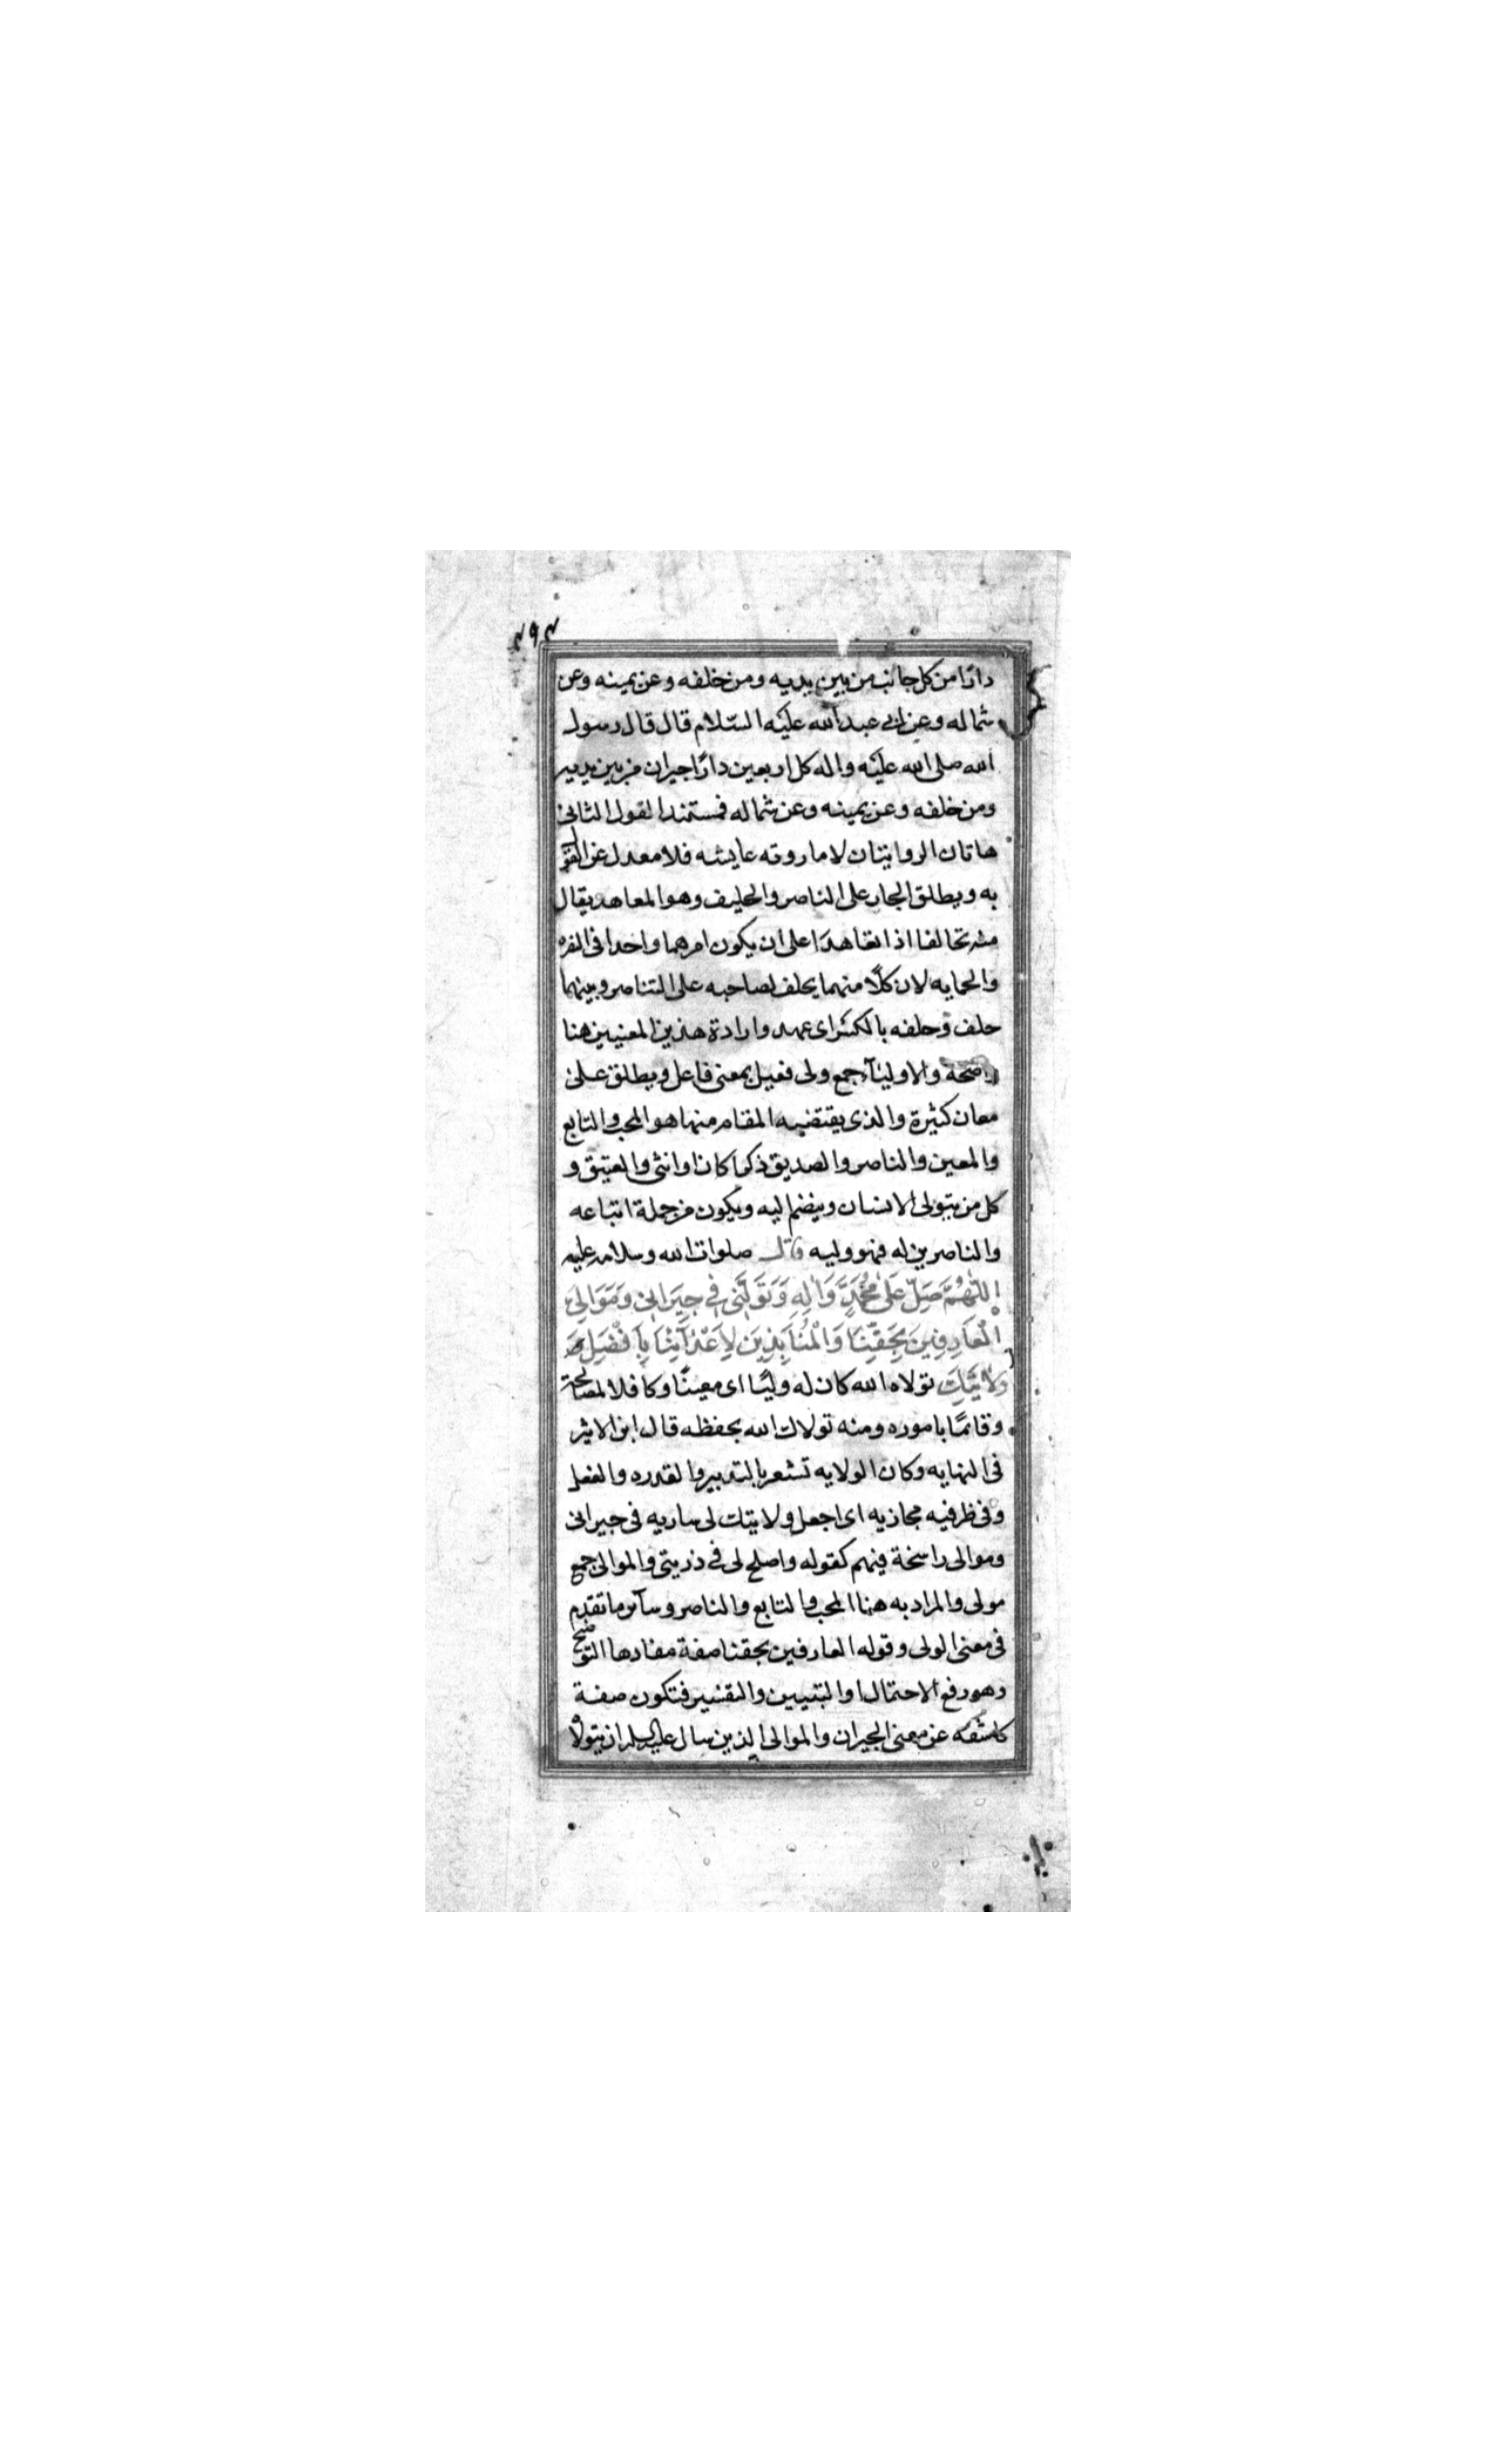 دارًا من كل جانب من بين يديه ومن خلفه وعن يمينه وعن
شماله وعن ابى عبد الله عليه السّلام قال قال رسول
الله صلى الله عليه واله كل اربعين دارًا جيران من بين يديه
ومن خلفه وعن يمينه وعن شماله فمستند القول الثانى
هاتان الروايتان لا ما روته عايشه فلا معدل عن القول
به ويطلق الجار على الناصر والحليف وهو المعاهد يقال
منه تحالفا اذا تعاهدا على ان يكون امرهما واحدا فى النصره
والحمايه لان كلًا منهما يحلف لصاحبه على التناصر وبينهما
حلف وحلفه بالكسر اى عهد وارادة هذين المعنيين هنا
واضحة والاولياء جمع ولى فعيل بمعنى فاعل ويطلق على
معان كثيرة والذى يقتضيه المقام منها هو المحب والتابع
والمعين والناصر والصديق ذكرا كان او انثى والعتيق و
كل من يتولى الانسان وينضم اليه ويكون من جملة اتباعه
والناصرين له فهو وليه قال صلوات الله وسلامه عليه
اللّٰهُمَّ صَلِّ عَلٰى مُحَمَّدٍ وَاٰلِهِ وَتَوَلَّنى فى جيرَانى وَمَوَالِىَّ
الْعَارِفِينَ بِحَقِّنَا وَالْمُنَابِذِينَ لِاَعْدَآئِنَا بِاَفْضَلِ
وَلَايَتِكَ تولاه الله كان له وليًا اى معينًا وكافلا لمصالحه
وقائمًا باموره ومنه تولاك الله بحفظه قال ابن الاثير
فى النهايه وكان الولايه تشعر بالتدبير والقدره والفعل
وفى ظرفيه مجازيه اى اجعل ولايتك لى ساريه فى جيرانى
وموالى راسخة فيهم كقوله واصلح لى فى ذريتى والموالى جمع
مولى والمراد به هنا المحب والتابع والناصر وسآئر ما تقدم
فى معنى الولى وقوله العارفين بحقنا صفة مفادها التوضيح
وهو رفع الاحتمال او التبيين والتفسير فتكون صفة
كاشفه عن معنى الجيران والموالى الذين سال عليه السلم ان يتولاه